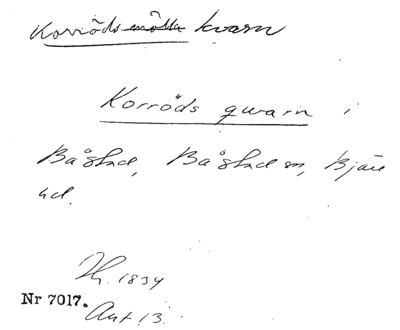 Korröds mölla kvarn
Korröds qvarn i
Båstad, Båstad sn, Bjäre
hd.
Th. 1834
Nr 7017.
Ant 13.